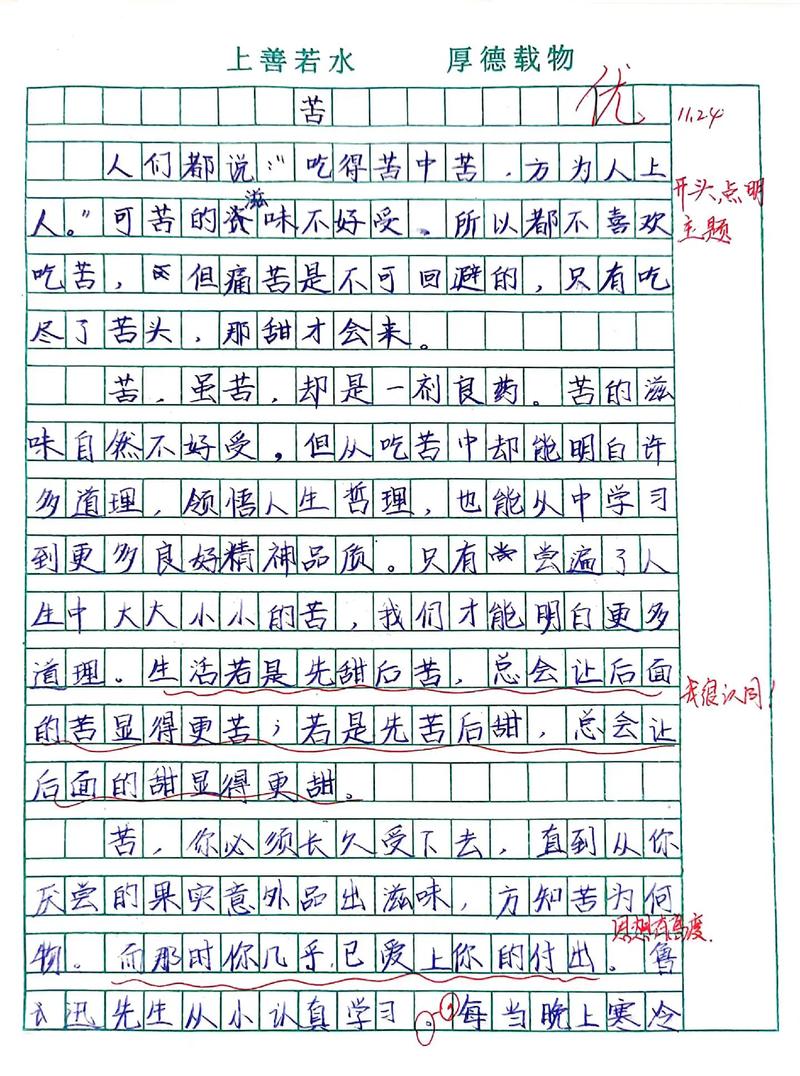 上善若水 厚德载物
苦
优
11.24
人们都说:"吃得苦中苦,方为人上
开头,点明
主题
人。"可苦的滋味不好受。所以都不喜欢
吃苦,但痛苦是不可回避的,只有吃
尽了苦头,那甜才会来。
苦,虽苦,却是一剂良药。苦的滋
味自然不好受,但从吃苦中却能明白许
多道理,领悟人生哲理,也能从中学习
到更多良好精神品质。只有尝遍了人
生中大大小小的苦,我们才能明白更多
道理。生活若是先甜后苦,总会让后面
我很认同!
的苦显得更苦;若是先苦后甜,总会让
后面的甜显得更甜。
苦,你必须长久受下去,直到从你
厌尝的果实意外品出滋味,方知苦为何
思想有高度.
物。而那时你几乎已爱上你的付出。鲁
迅先生从小认真学习。每当晚上寒冷